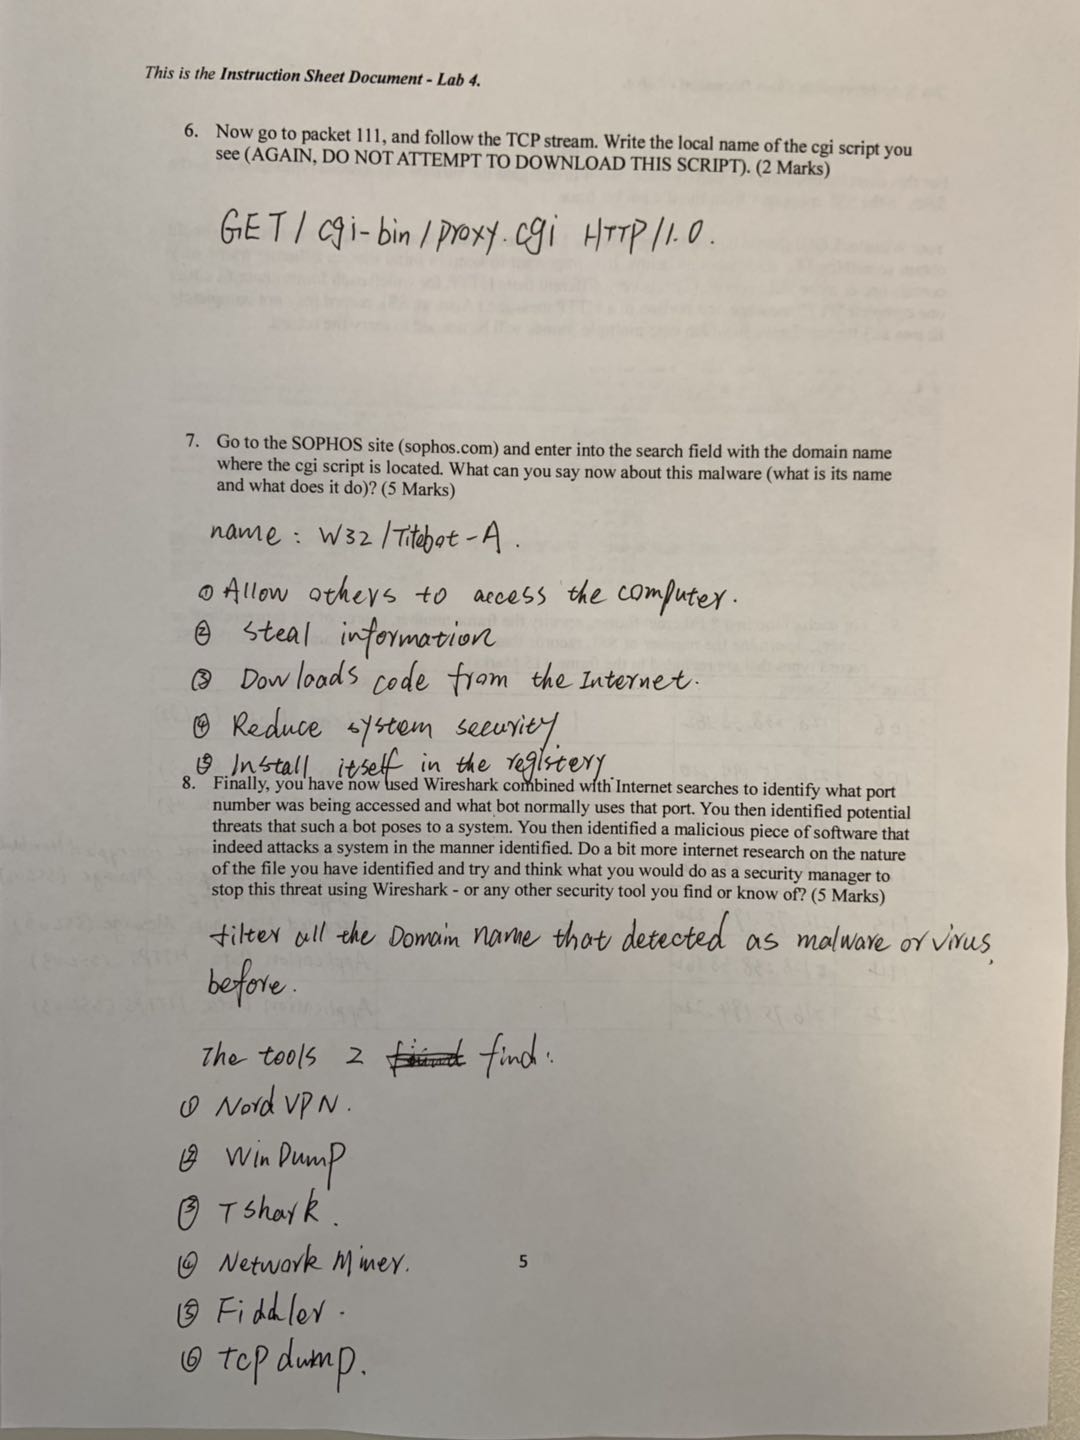 This is the Instruction Sheet Document - Lab 4.
6. Now go to packet 111, and follow the TCP stream. Write the local name of the cgi script you
see (AGAIN, DO NOT ATTEMPT TO DOWNLOAD THIS SCRIPT). (2 Marks)
GET / cgi-bin / proxy.cgi HTTP/1.0.
7. Go to the SOPHOS site (sophos.com) and enter into the search field with the domain name
where the cgi script is located. What can you say now about this malware (what is its name
and what does it do)? (5 Marks)
name : W32 / Titebot - A .
① Allow others to access the computer.
② Steal information
③ Dowloads code from the Internet.
④ Reduce system security
⑤ Install itself in the registery.
8. Finally, you have now used Wireshark combined with Internet searches to identify what port
number was being accessed and what bot normally uses that port. You then identified potential
threats that such a bot poses to a system. You then identified a malicious piece of software that
indeed attacks a system in the manner identified. Do a bit more internet research on the nature
of the file you have identified and try and think what you would do as a security manager to
stop this threat using Wireshark - or any other security tool you find or know of? (5 Marks)
filter all the Domain name that detected as malware or virus
before.
The tools I find :
① Nord VPN.
② Win Dump
③ Tshark.
④ Network Miner.
5
⑤ Fiddler.
⑥ tcp dump.